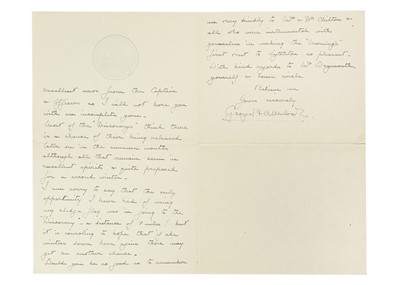 excellent news from the Captain
& Officers so I will not bore you
with an incomplete yarn.
Most of the "Discoverys" think there
is a chance of their being released
later on in the summer months
although all that remain seem in
excellent spirits & quite prepared
for a second winter.
I am sorry to say that the only
opportunity I have had of using
my sledge flag was in going to the
"Discovery" a distance of 8 miles! but
it is consoling to hope that if she
winters down here again there may
yet be another chance.
Would you be so good as to remember
me very kindly to Mrs &
all who were instrumental with
yourselves in making the "Morning's"
first visit to Lyttelton so pleasant.
With kind regards to Mrs
yourself &
Believe me
Yours sincerely
George F. A. Mulock